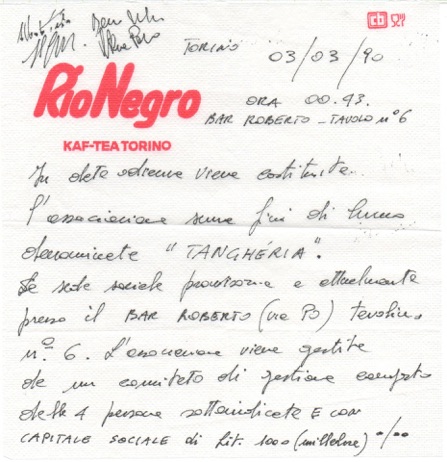 TORINO 03/03/90
RioNegro
KAF-TEA TORINO
ORA 00.43.
BAR ROBERTO - TAVOLO n° 6
In data odierna viene costituita
l'associazione senza fini di lucro
denominata "TANGHÉRIA".
La sede sociale provvisoria e attualmente
presso il BAR ROBERTO (via PO) tavolino
n° 6. L'associazione viene gestita
da un comitato di gestione composto
dalle 4 persone sottoindicate E CON
CAPITALE SOCIALE di Lit. 1000 (millelire) •/••